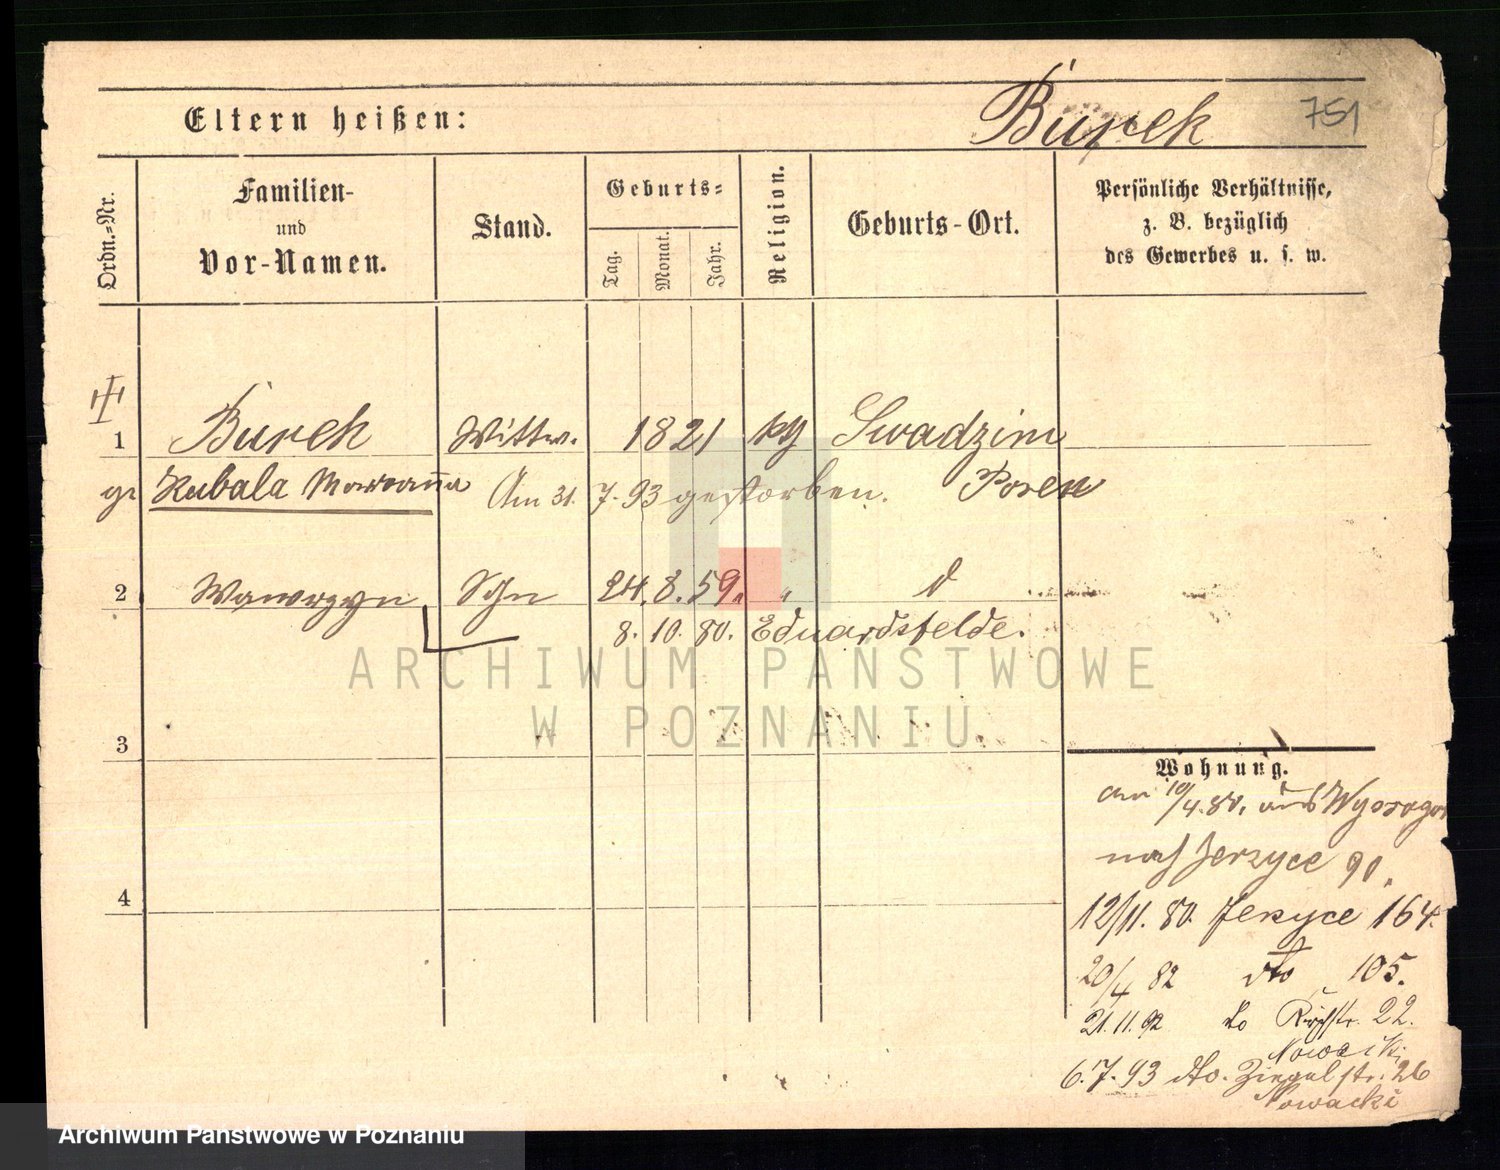 Eltern heißen: Burek 751
Ordn.=Nr.
Familien-
und
Vor-Namen.
Stand.
Geburts=
Tag.
Monat.
Jahr.
Religion.
Geburts-Ort.
Persönliche Verhältnisse,
z. B. bezüglich
des Gewerbes u. s. w.
1 Burek Wittw. 1821 kg Swadzim
Kubala Marianna Am 31. 7. 93 gestorben. Posen
2 Wawrzyn Sohn 24. 8. 59. " d
8. 10. 80. Eduardsfelde.
3
4
Wohnung.
am 10/4. 80. aus
nach Jerzyce 90.
12/11. 80. Jerzyce 164.
20/4 82 dto 105.
21. 11. 92 do Kirchstr. 22.
Nowacki
6. 7. 93 dto. Ziegelstr. 26
Nowacki
ARCHIWUM PAŃSTWOWE
W POZNANIU
Archiwum Państwowe w Poznaniu